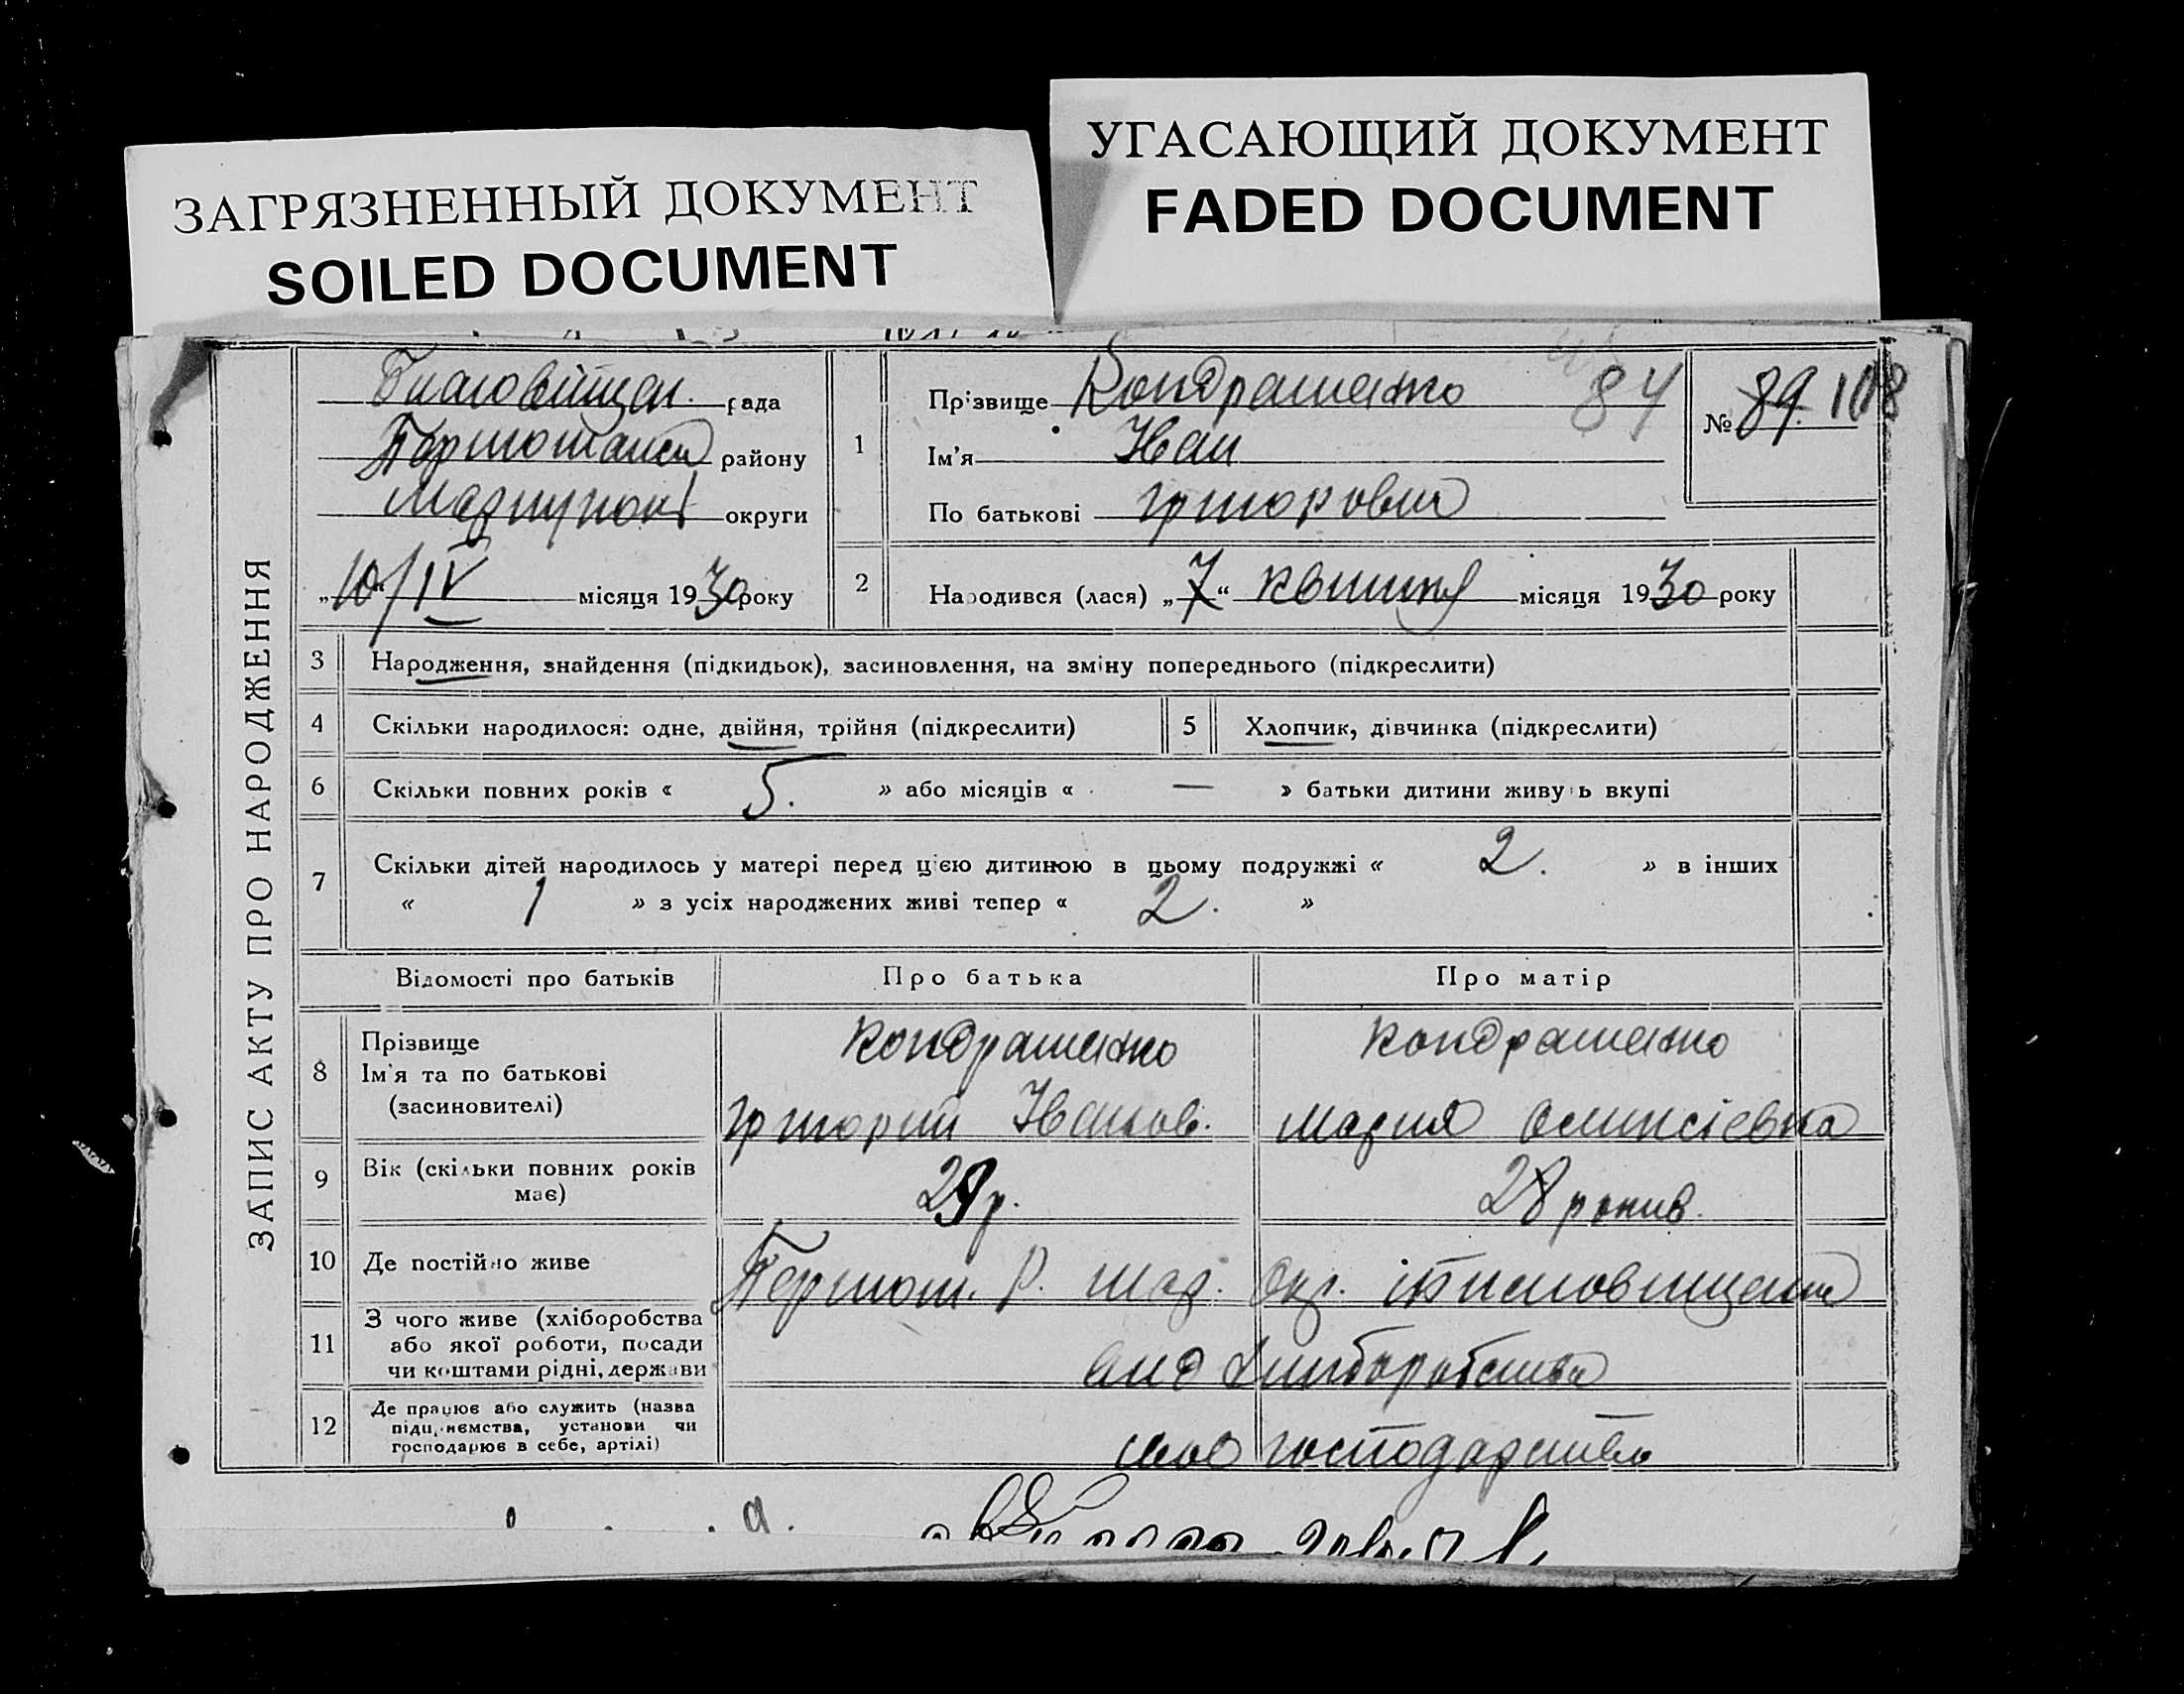 ЗАГРЯЗНЕННЫЙ ДОКУМЕНТ
SOILED DOCUMENT
УГАСАЮЩИЙ ДОКУМЕНТ
FADED DOCUMENT
ЗАПИС АКТУ ПРО НАРОДЖЕННЯ
рада
району
округи
„10“/IV місяця 1930 року
1
Прізвище Кондрашенко 84
Ім'я Иван
По батькові Григорович
№ 89. 108
2 Народився (лася) „7“ квитня місяця 1930 року
3 Народження, знайдення (підкидьок), засиновлення, на зміну попереднього (підкреслити)
4 Скільки народилося: одне, двійня, трійня (підкреслити)
5 Хлопчик, дівчинка (підкреслити)
6 Скільки повних років « 5. » або місяців « — » батьки дитини живуть вкупі
7 Скільки дітей народилось у матері перед цією дитиною в цьому подружжі « 2. » в інших
« 1 » з усіх народжених живі тепер « 2. »
Відомості про батьків Про батька Про матір
8 Прізвище
Ім'я та по батькові
(засиновителі)
Кондрашенко
Григорий Иванов.
Кондрашенко
Мария
9 Вік (скільки повних років
має)
29 р.
28 рокив.
10 Де постійно живе
Першот. Р. Мар. Окр.
11 З чого живе (хліборобства
або якої роботи, посади
чи коштами рідні, держави
хлиборобства
12 Де працює або служить (назва
підприємства, установи чи
господарює в себе, артілі)
своє господарство